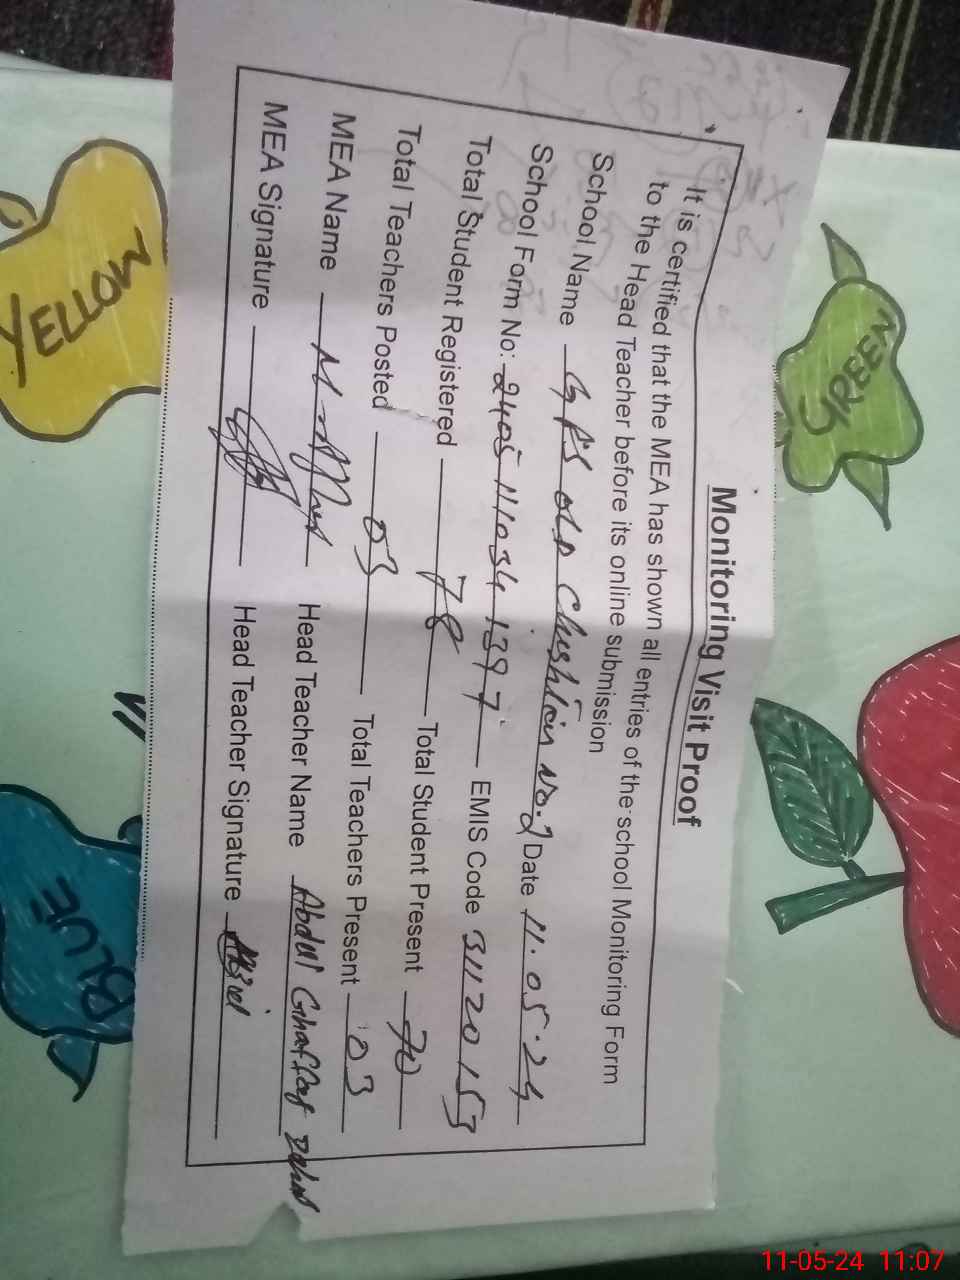 Monitoring Visit Proof
It is certified that the MEA has shown all entries of the school Monitoring Form
to the Head Teacher before its online submission
School Name GPS old Chishtian No.2 Date 11.05.24
School Form No: 2405 11034 1397 EMIS Code 31120153
Total Student Registered 78 Total Student Present 70
Total Teachers Posted 03 Total Teachers Present 03
MEA Name Head Teacher Name Abdul Ghaffar
MEA Signature Head Teacher Signature
YELLOW
GREEN
BLUE
11-05-24 11:07